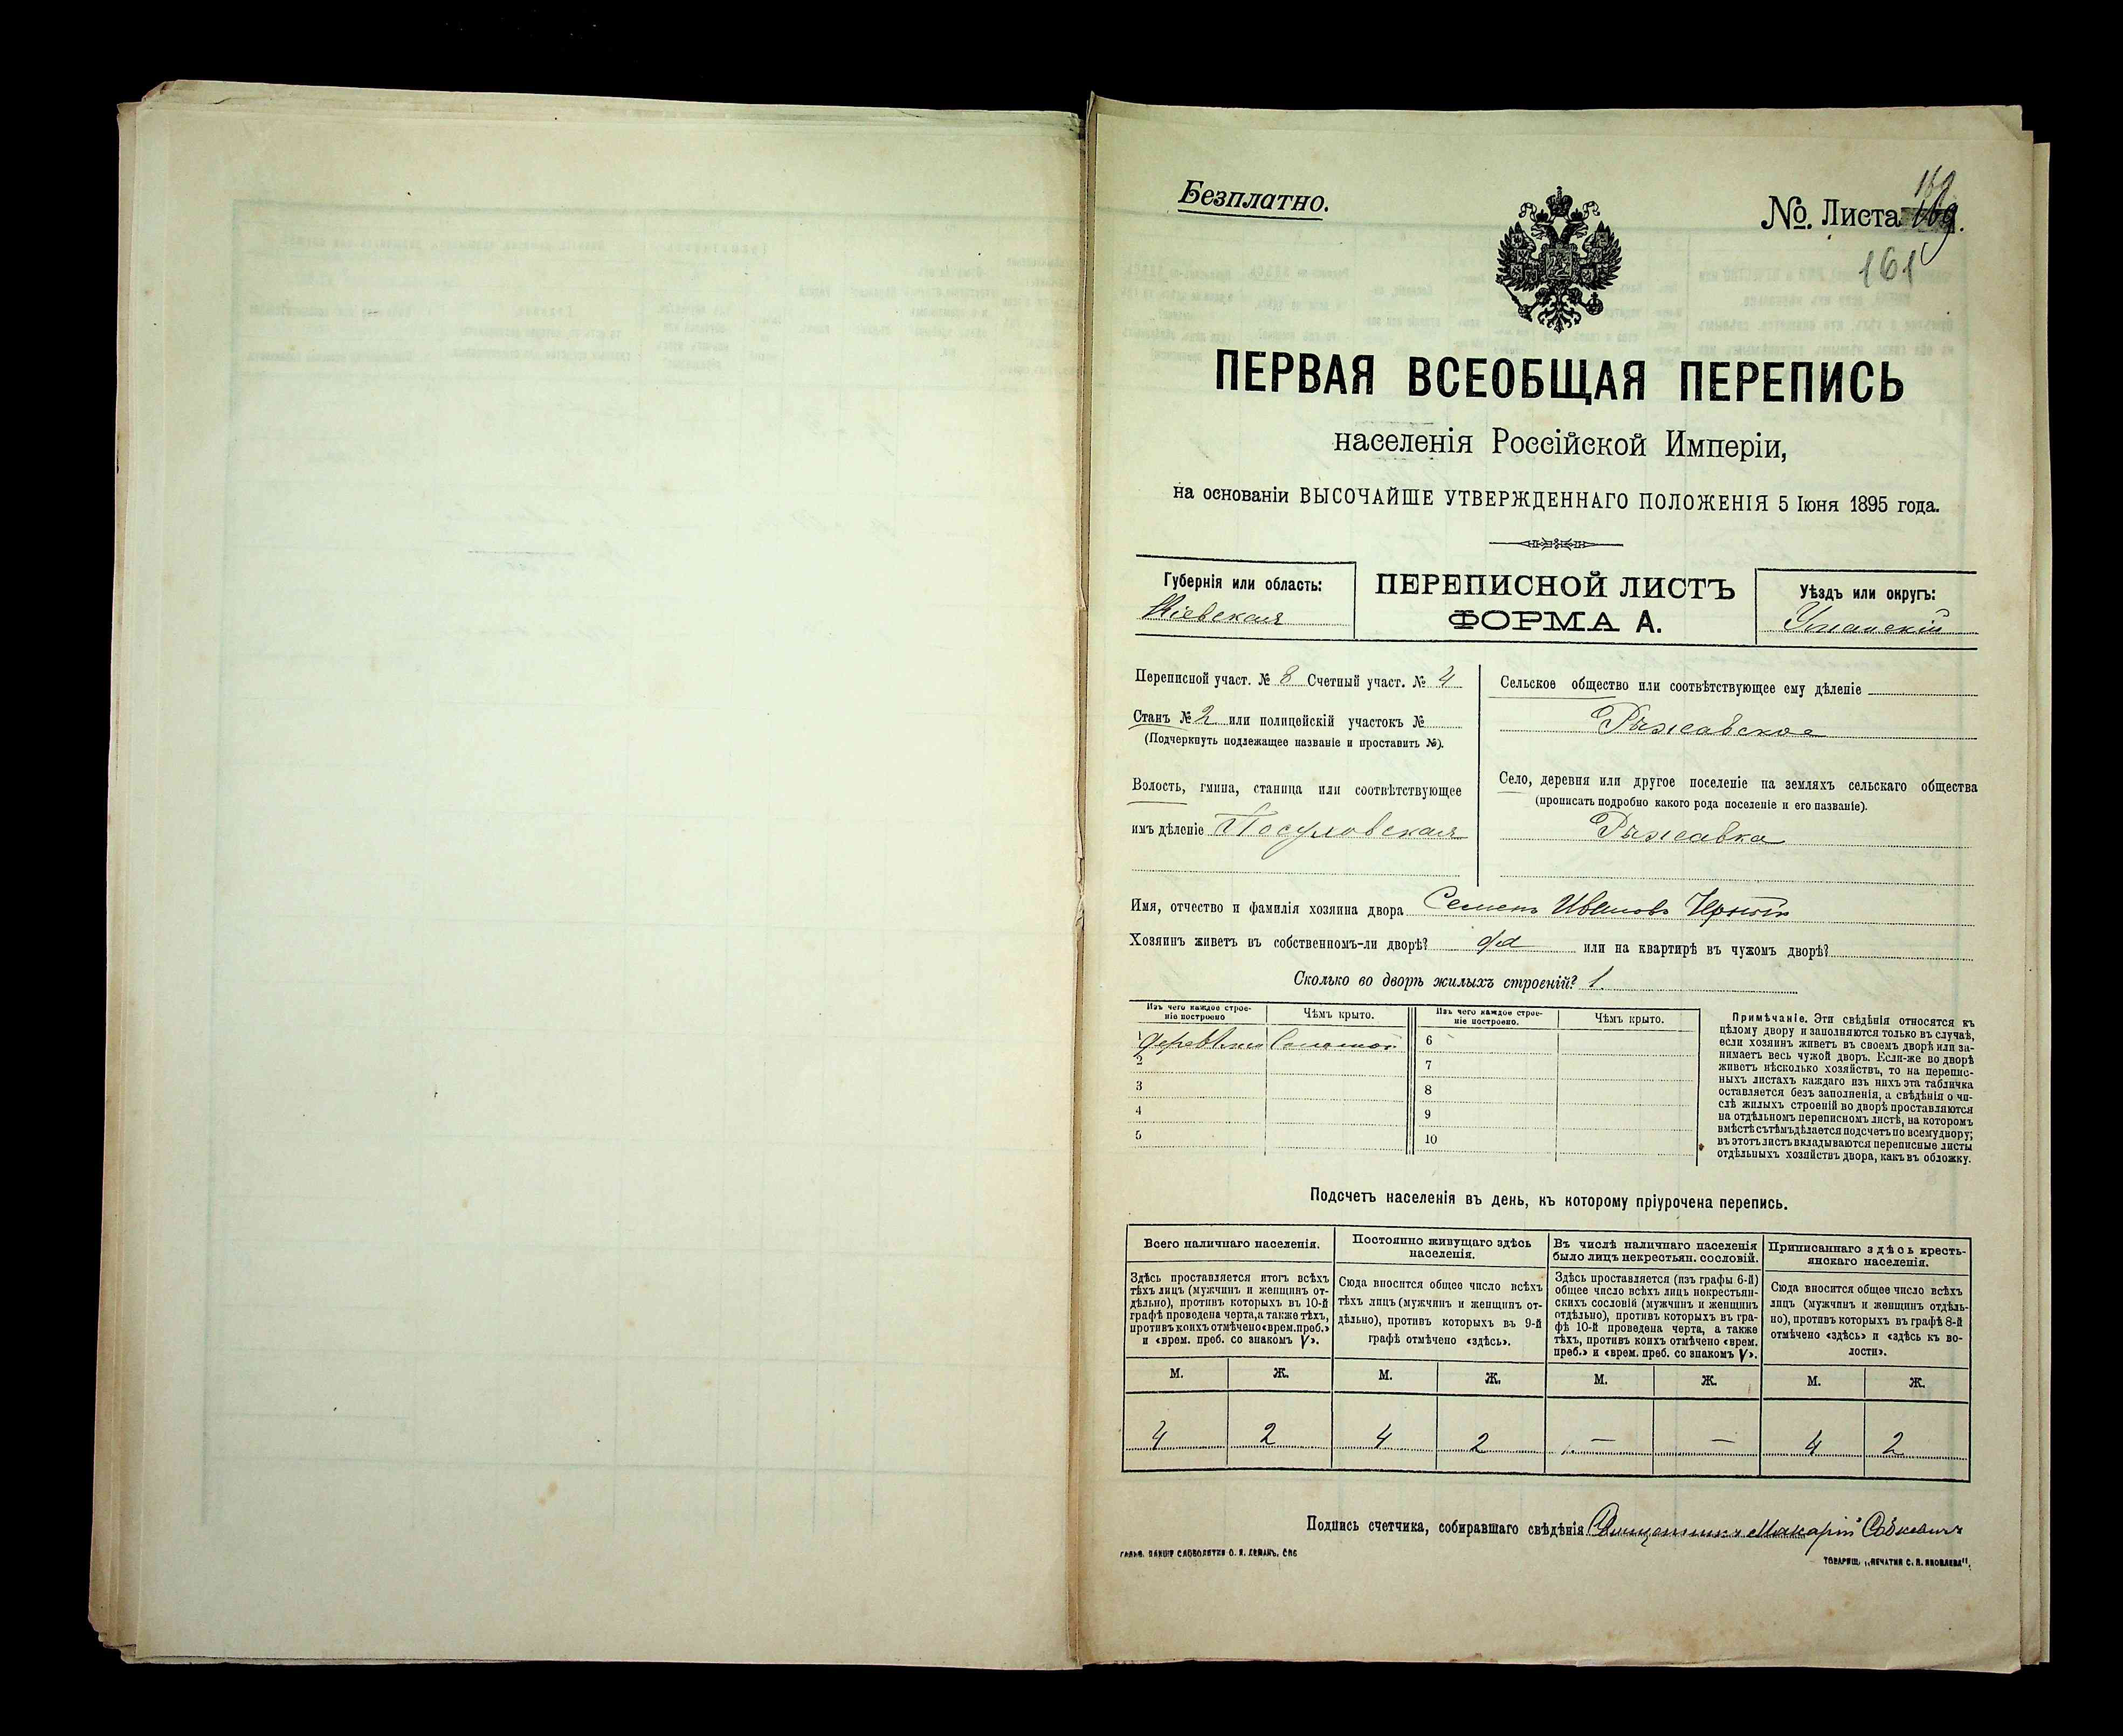 Безплатно.
№. Листа 169.
161
ПЕРВАЯ ВСЕОБЩАЯ ПЕРЕПИСЬ
населенія Россійской Имперіи,
на основаніи ВЫСОЧАЙШЕ УТВЕРЖДЕННАГО ПОЛОЖЕНІЯ 5 Іюня 1895 года.
Губернія или область:
Кіевская
ПЕРЕПИСНОЙ ЛИСТЪ
ФОРМА А.
Уѣздъ или округъ:
Уманскій
Переписной участ. № 8 Счетный участ. № 4
Станъ № 2 или полицейскій участокъ №
(Подчеркнуть подлежащее названіе и проставить №).
Волость, гмина, станица или соотвѣтствующее
имъ дѣленіе
Сельское общество или соотвѣтствующее ему дѣленіе
Рыжавское
Село, деревня или другое поселеніе на земляхъ сельскаго общества
(прописать подробно какого рода поселеніе и его названіе).
Рыжавка
Имя, отчество и фамилія хозяина двора Семенъ Ивановъ
Хозяинъ живетъ въ собственномъ-ли дворѣ? да или на квартирѣ въ чужомъ дворѣ?
Сколько во дворѣ жилыхъ строеній? 1.
Изъ чего каждое строе-
ніе построено
Чѣмъ крыто.
Изъ чего каждое строе-
ніе построено.
Чѣмъ крыто.
1
2
3
4
5
6
7
8
9
10
Примѣчаніе. Эти свѣдѣнія относятся къ
цѣлому двору и заполняются только въ случаѣ,
если хозяинъ живетъ въ своемъ дворѣ или за-
нимаетъ весь чужой дворъ. Если-же во дворѣ
живетъ нѣсколько хозяйствъ, то на перепис-
ныхъ листахъ каждаго изъ нихъ эта табличка
оставляется безъ заполненія, а свѣдѣнія о чи-
слѣ жилыхъ строеній во дворѣ проставляются
на отдѣльномъ переписномъ листѣ, на которомъ
вмѣстѣ съ тѣмъ дѣлается подсчетъ по всему двору;
въ этотъ листъ вкладываются переписные листы
отдѣльныхъ хозяйствъ двора, какъ въ обложку.
Подсчетъ населенія въ день, къ которому пріурочена перепись.
Всего наличнаго населенія.
Здѣсь проставляется итогъ всѣхъ
тѣхъ лицъ (мужчинъ и женщинъ от-
дѣльно), противъ которыхъ въ 10-й
графѣ проведена черта, а также тѣхъ,
противъ коихъ отмѣчено «врем. преб.»
и «врем. преб. со знакомъ V».
Постоянно живущаго здѣсь
населенія.
Сюда вносится общее число всѣхъ
тѣхъ лицъ (мужчинъ и женщинъ от-
дѣльно), противъ которыхъ въ 9-й
графѣ отмѣчено «здѣсь».
Въ числѣ наличнаго населенія
было лицъ некрестьян. сословій.
Здѣсь проставляется (изъ графы 6-й)
общее число всѣхъ лицъ некрестьян-
скихъ сословій (мужчинъ и женщинъ
отдѣльно), противъ которыхъ въ гра-
фѣ 10-й проведена черта, а также
тѣхъ, противъ коихъ отмѣчено «врем.
преб.» и «врем. преб. со знакомъ V».
Приписаннаго здѣсь кресть-
янскаго населенія.
Сюда вносится общее число всѣхъ
лицъ (мужчинъ и женщинъ отдѣль-
но), противъ которыхъ въ графѣ 8-й
отмѣчено «здѣсь» и «здѣсь къ во-
лости».
М. Ж. М. Ж. М. Ж. М. Ж.
4 2 4 2 — — 4 2
Подпись счетчика, собиравшаго свѣдѣнія Макарій
ТОВАРИЩ. „ПЕЧАТНЯ С. П. ЯКОВЛЕВА".